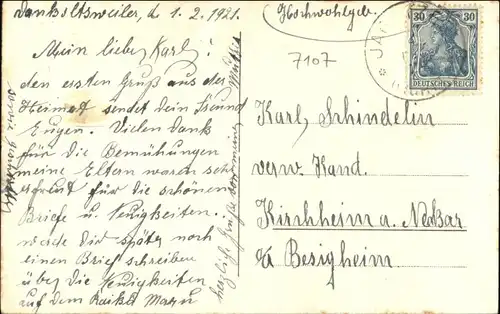 Dankoltsweiler, d. 1.2.1921.
Mein lieber Karl!
den ersten Gruß aus der
Heimat sendet Dein Freund
Eugen. Vielen Dank
für die Bemühungen
meine Eltern waren sehr
erfreut für die schönen
Briefe u. Neuigkeiten.
werde Dir später noch
einen Brief schreiben
über die Neuigkeiten
auf dem
herzlich Grüße von meine
Hochwohlgeb.
7107
30 30
DEUTSCHES REICH
Karl Schindelin
verw. Kand.
Kirchheim a. Neckar
Besigheim